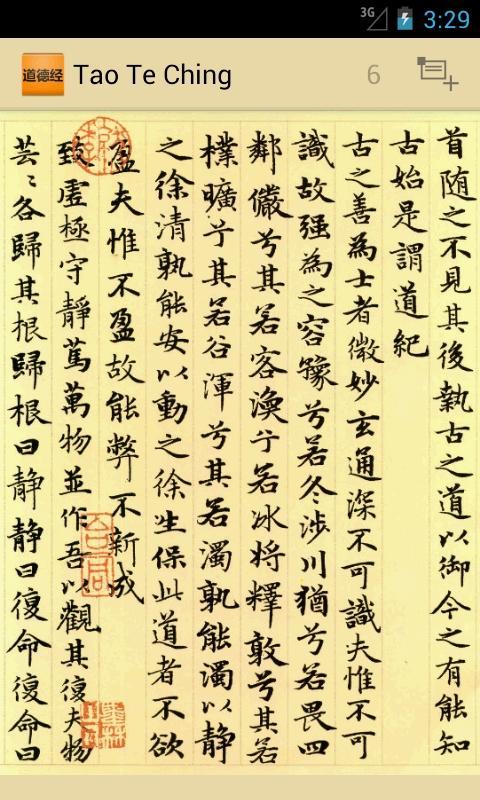 3G 3:29
道德经 Tao Te Ching 6
首随之不見其後執古之道以御今之有能知
古始是謂道紀
古之善為士者微妙玄通深不可識夫惟不可
識故强為之容豫兮若冬涉川猶兮若畏四
鄰儼兮其若容渙兮若冰將釋敦兮其若
樸曠兮其若谷渾兮其若濁孰能濁以静
之徐清孰能安以動之徐生保此道者不欲
盈夫惟不盈故能弊不新成
致虛極守靜篤萬物並作吾以觀其復夫物
芸〻各歸其根歸根曰静静曰復命復命曰
合同